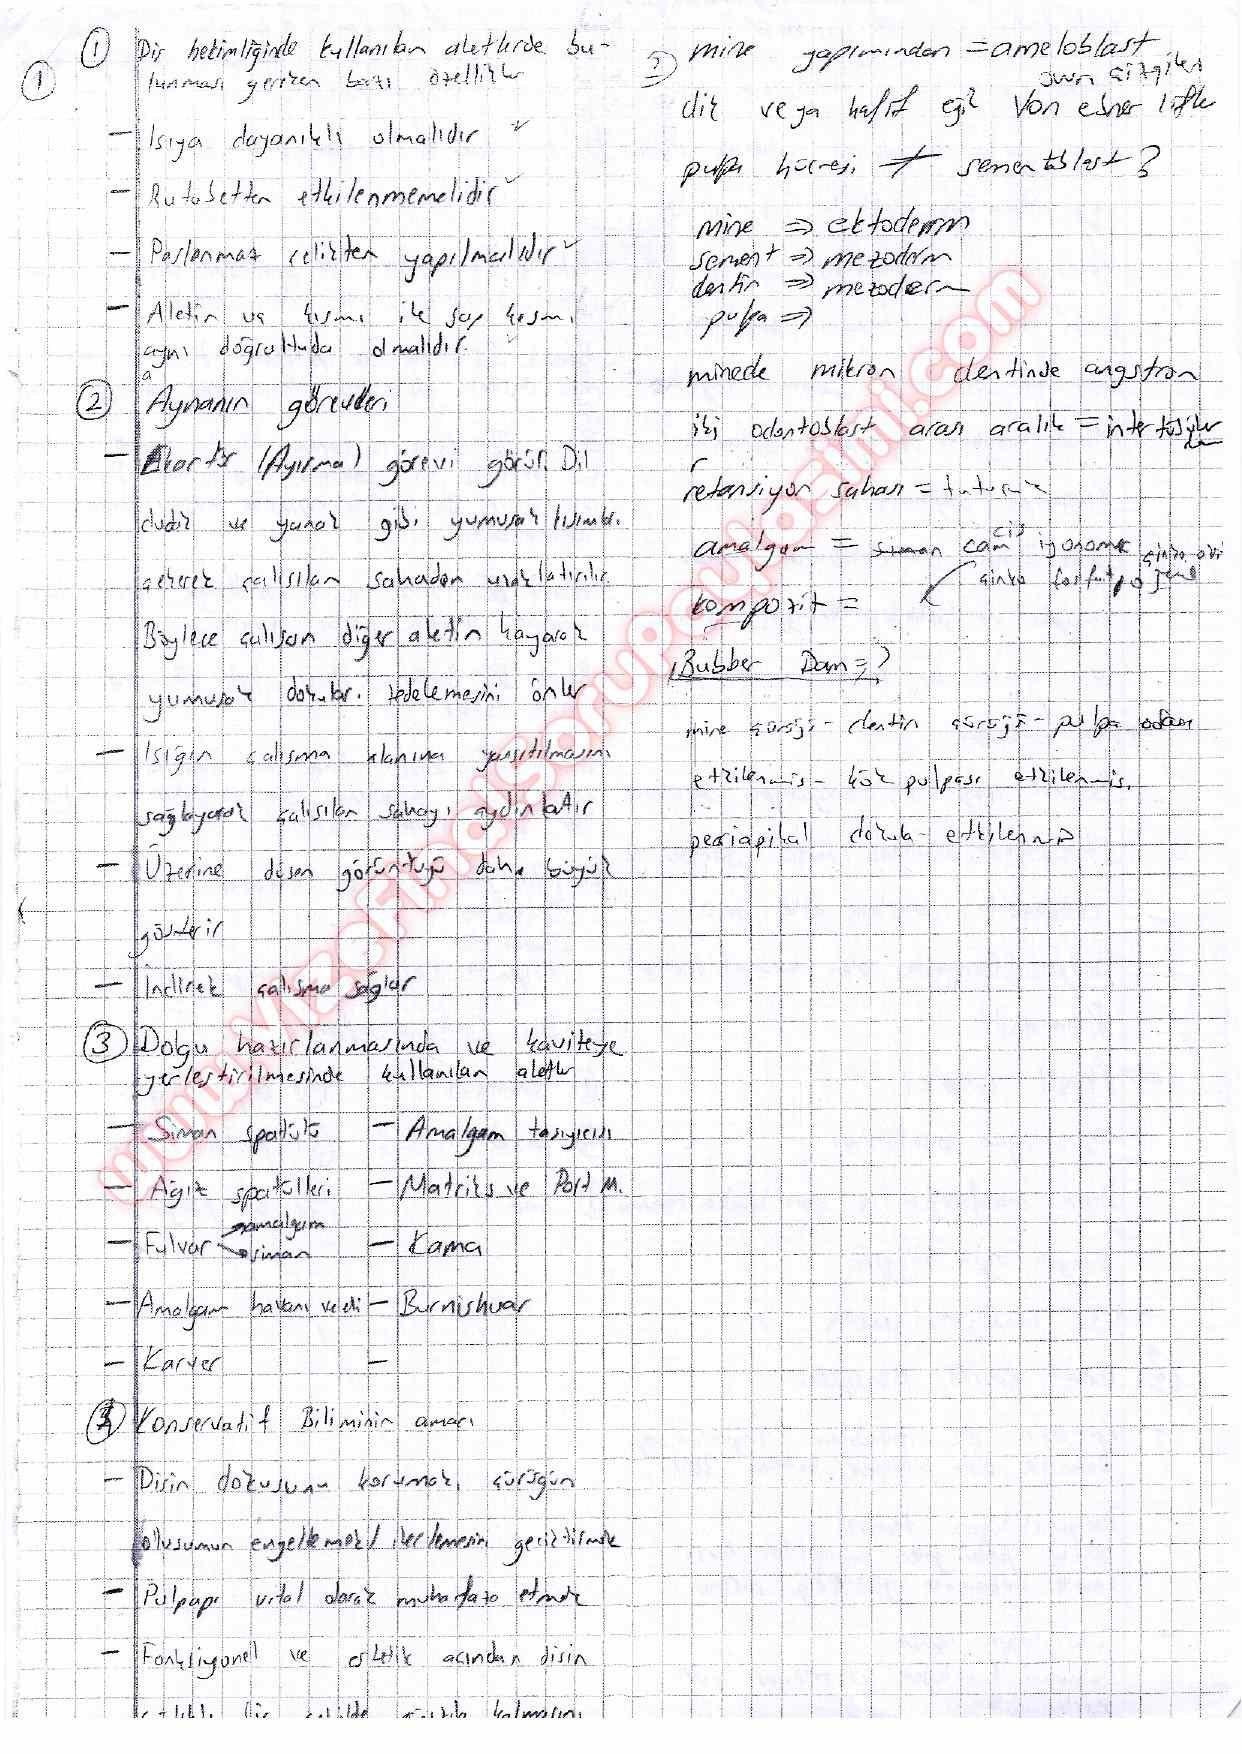 1
1 Diş hekimliğinde kullanılan aletlerde bu-
lunması gereken bazı özellikler
— Isıya dayanıklı olmalıdır ✓
— Rutubetten etkilenmemelidir ✓
— Paslanmaz çelikten yapılmalıdır ✓
— Aletin uç kısmı ile sap kısmı
aynı doğrultuda olmalıdır. ✓
2 Aynanın görevleri
— Ekartör (Ayırma) görevi görür. Dil
dudak ve yanak gibi yumuşak kısımları
çekerek çalışılan sahadan uzaklaştırılır
Böylece çalışan diğer aletin kayarak
yumuşak dokuları zedelemesini önler
— Işığın çalışma alanına yansıtılmasını
sağlayarak çalışılan sahayı aydınlatır
— Üzerine düşen görüntüyü daha büyük
gösterir
— İndirek çalışma sağlar
3 Dolgu hazırlanmasında ve kaviteye
yerleştirilmesinde kullanılan aletler
— Siman spatülü — Amalgam taşıyıcısı
— Ağız spatülleri — Matriks ve Port M.
— Fulvar amalgam siman — Kama
— Amalgam havanı ve eli — Burnishuar
— Karver —
4 Konservatif Biliminin amacı
— Dişin dokusunu korumak, çürüğün
oluşumun engellemek / ilerlemesini geciktirmek
— Pulpayı vital olarak muhafaza etmek
— Fonksiyonel ve estetik açından dişin
? mine yapımından = ameloblast
dik veya hafif eğik Von ebner lifler
pulpa hücresi ≠ sementoblast ?
mine => ektoderm
sement => mezoderm
dentin => mezoderm
pulpa =>
minede mikron dentinde angstron
iki odontoblast arası aralık = intertübüler
retansiyon sahası = tutucu
amalgam = siman cam iyonomer
çinko fosfat
kompozit =
Bubber Dam = ?
mine çürüğü - dentin çürüğü - pulpa odası
etkilenmiş - kök pulpası etkilenmiş.
periapikal doku etkilenmiş
www.vizefinalSoruPaylasimi.com